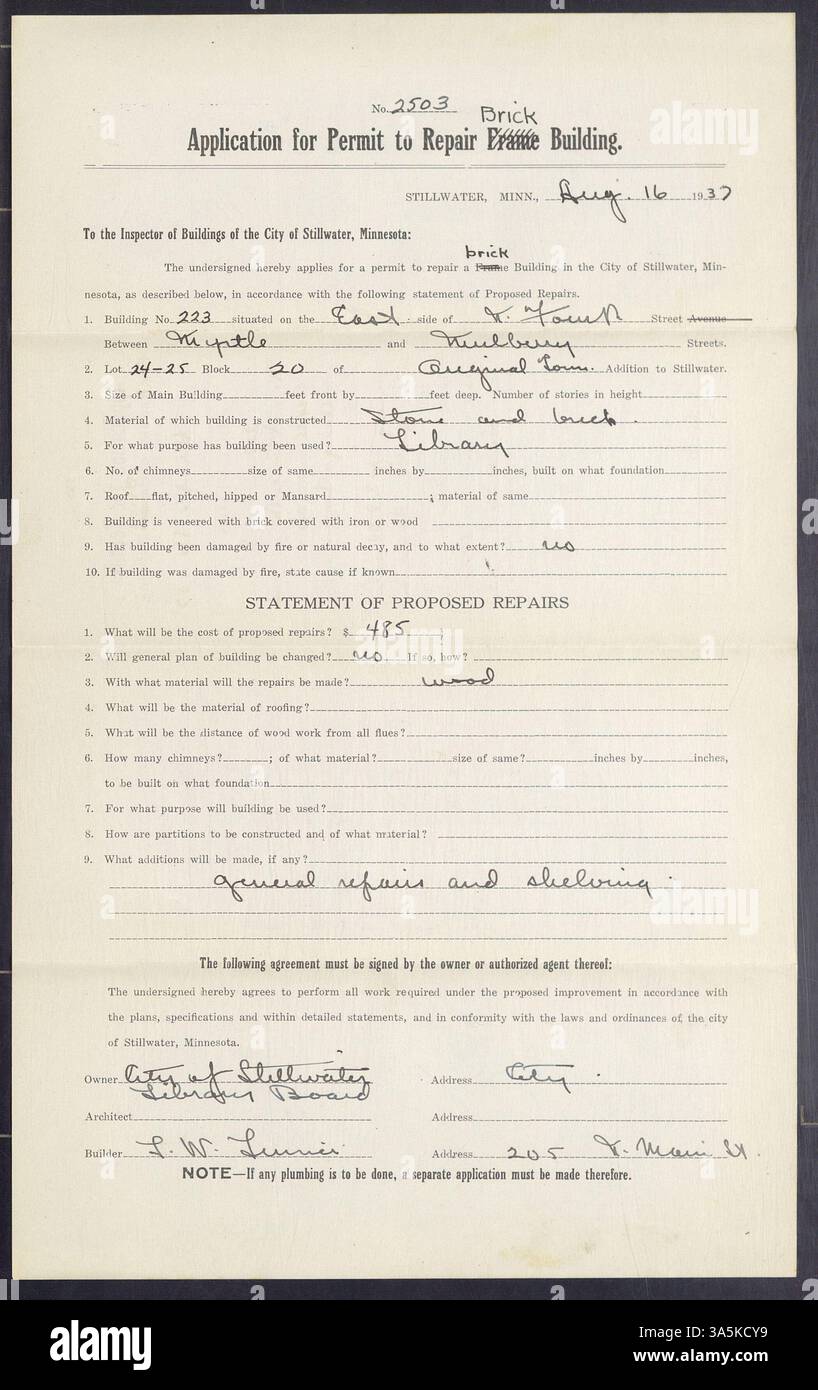 No. 2503
Brick
Application for Permit to Repair Frame Building.
STILLWATER, MINN., Aug. 16 1937
To the Inspector of Buildings of the City of Stillwater, Minnesota:
brick
The undersigned hereby applies for a permit to repair a Frame Building in the City of Stillwater, Min-
nesota, as described below, in accordance with the following statement of Proposed Repairs.
1. Building No. 223 situated on the East side of N. Fourth Street Avenue
Between Myrtle and Mulberry Streets.
2. Lot 24-25 Block 20 of Original Town. Addition to Stillwater.
3. Size of Main Building feet front by feet deep. Number of stories in height
4. Material of which building is constructed Stone and brick.
5. For what purpose has building been used? Library
6. No. of chimneys size of same inches by inches, built on what foundation
7. Roof flat, pitched, hipped or Mansard ; material of same
8. Building is veneered with brick covered with iron or wood
9. Has building been damaged by fire or natural decay, and to what extent? no
10. If building was damaged by fire, state cause if known
STATEMENT OF PROPOSED REPAIRS
1. What will be the cost of proposed repairs? $ 485
2. Will general plan of building be changed? no If so, how?
3. With what material will the repairs be made? wood
4. What will be the material of roofing?
5. What will be the distance of wood work from all flues?
6. How many chimneys? ; of what material? size of same? inches by inches,
to be built on what foundation
7. For what purpose will building be used?
8. How are partitions to be constructed and of what material?
9. What additions will be made, if any?
general repairs and shelving.
The following agreement must be signed by the owner or authorized agent thereof:
The undersigned hereby agrees to perform all work required under the proposed improvement in accordance with
the plans, specifications and within detailed statements, and in conformity with the laws and ordinances of the city
of Stillwater, Minnesota.
Owner City of Stillwater Address City.
Library Board
Architect Address
Builder L. W. Address 205 N. Main St.
NOTE—If any plumbing is to be done, a separate application must be made therefore.
alamy
Image ID: 3A5KCY9
www.alamy.com